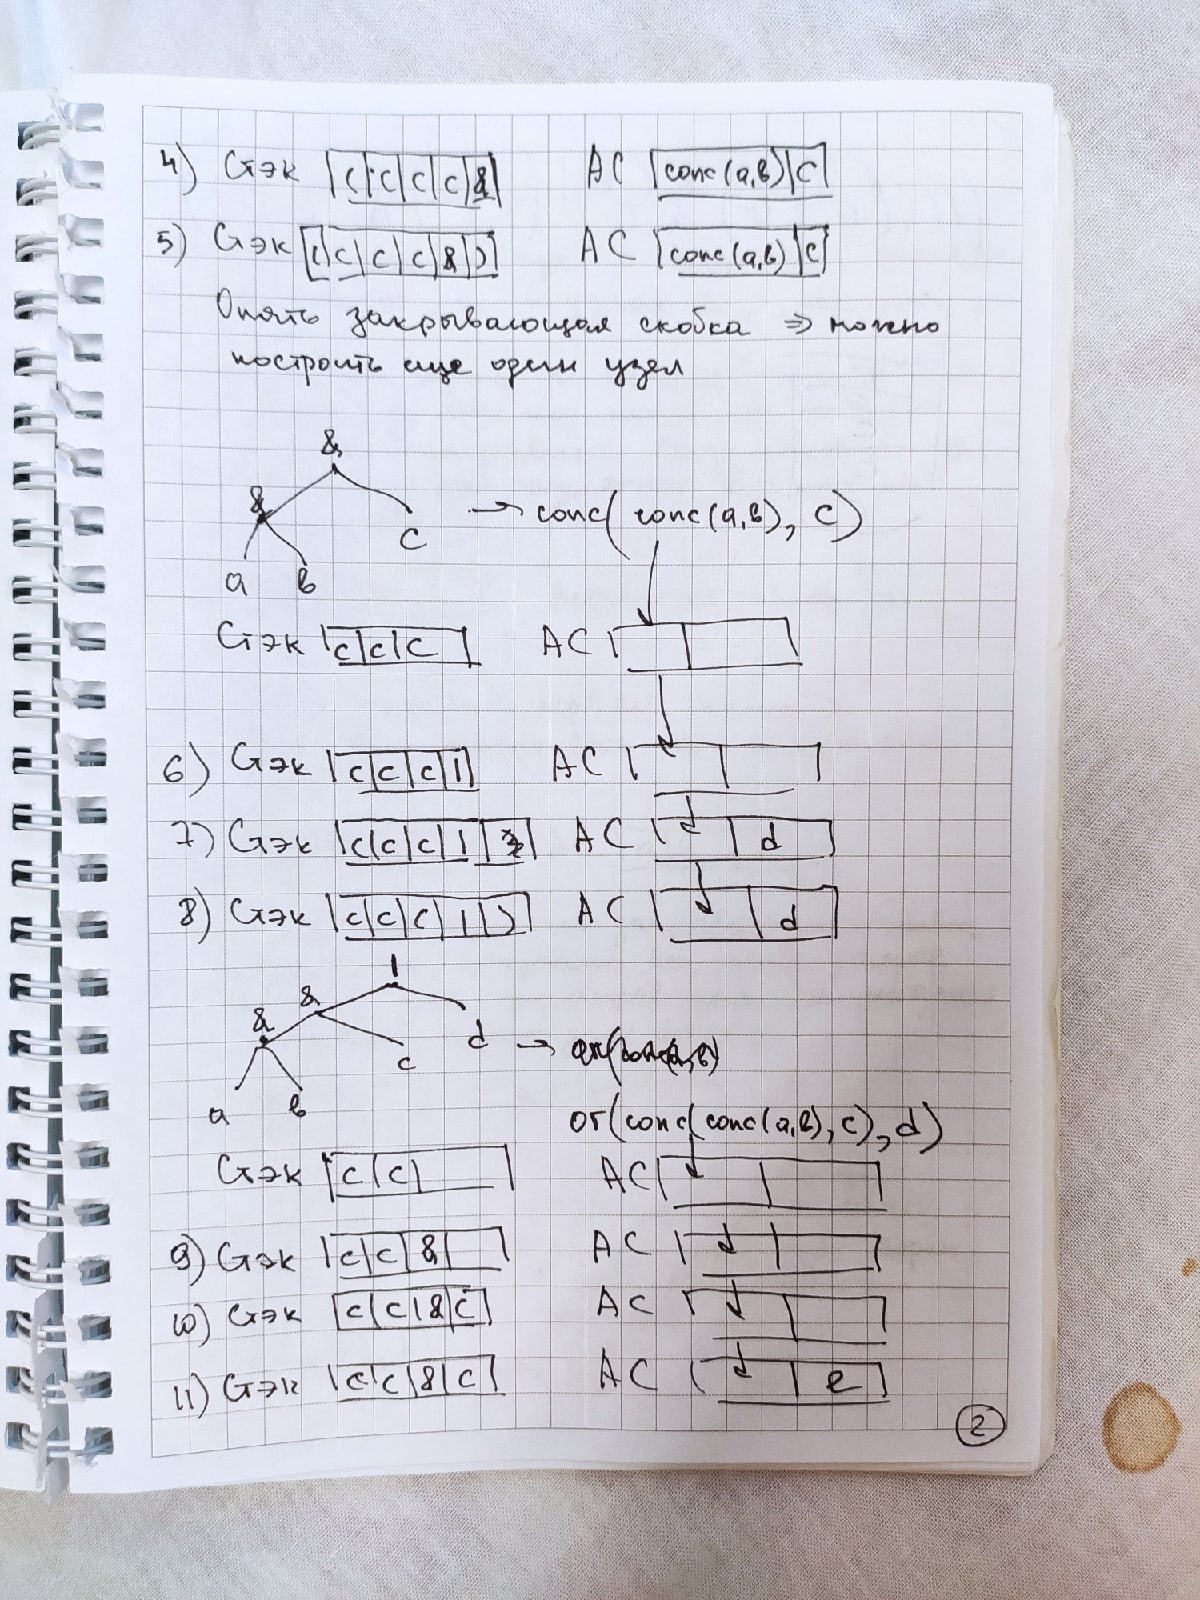 4) Стэк ( ( ( ( & АС conc(a,b) c
5) Стэк ( ( ( ( & ) АС conc(a,b) c
Опять закрывающая скобка ⇒ можно
построить еще один узел
&
& → conc(conc(a,b), c)
c
a b
Стэк ( ( ( АС
6) Стэк ( ( ( | АС
7) Стэк ( ( ( | АС d
8) Стэк ( ( ( | ) АС d
|
&
& d →
c
a b or(conc(conc(a,b),c),d)
Стэк ( ( АС
9) Стэк ( ( & АС
10) Стэк ( ( & ( АС
11) Стэк ( ( & ( АС e
2